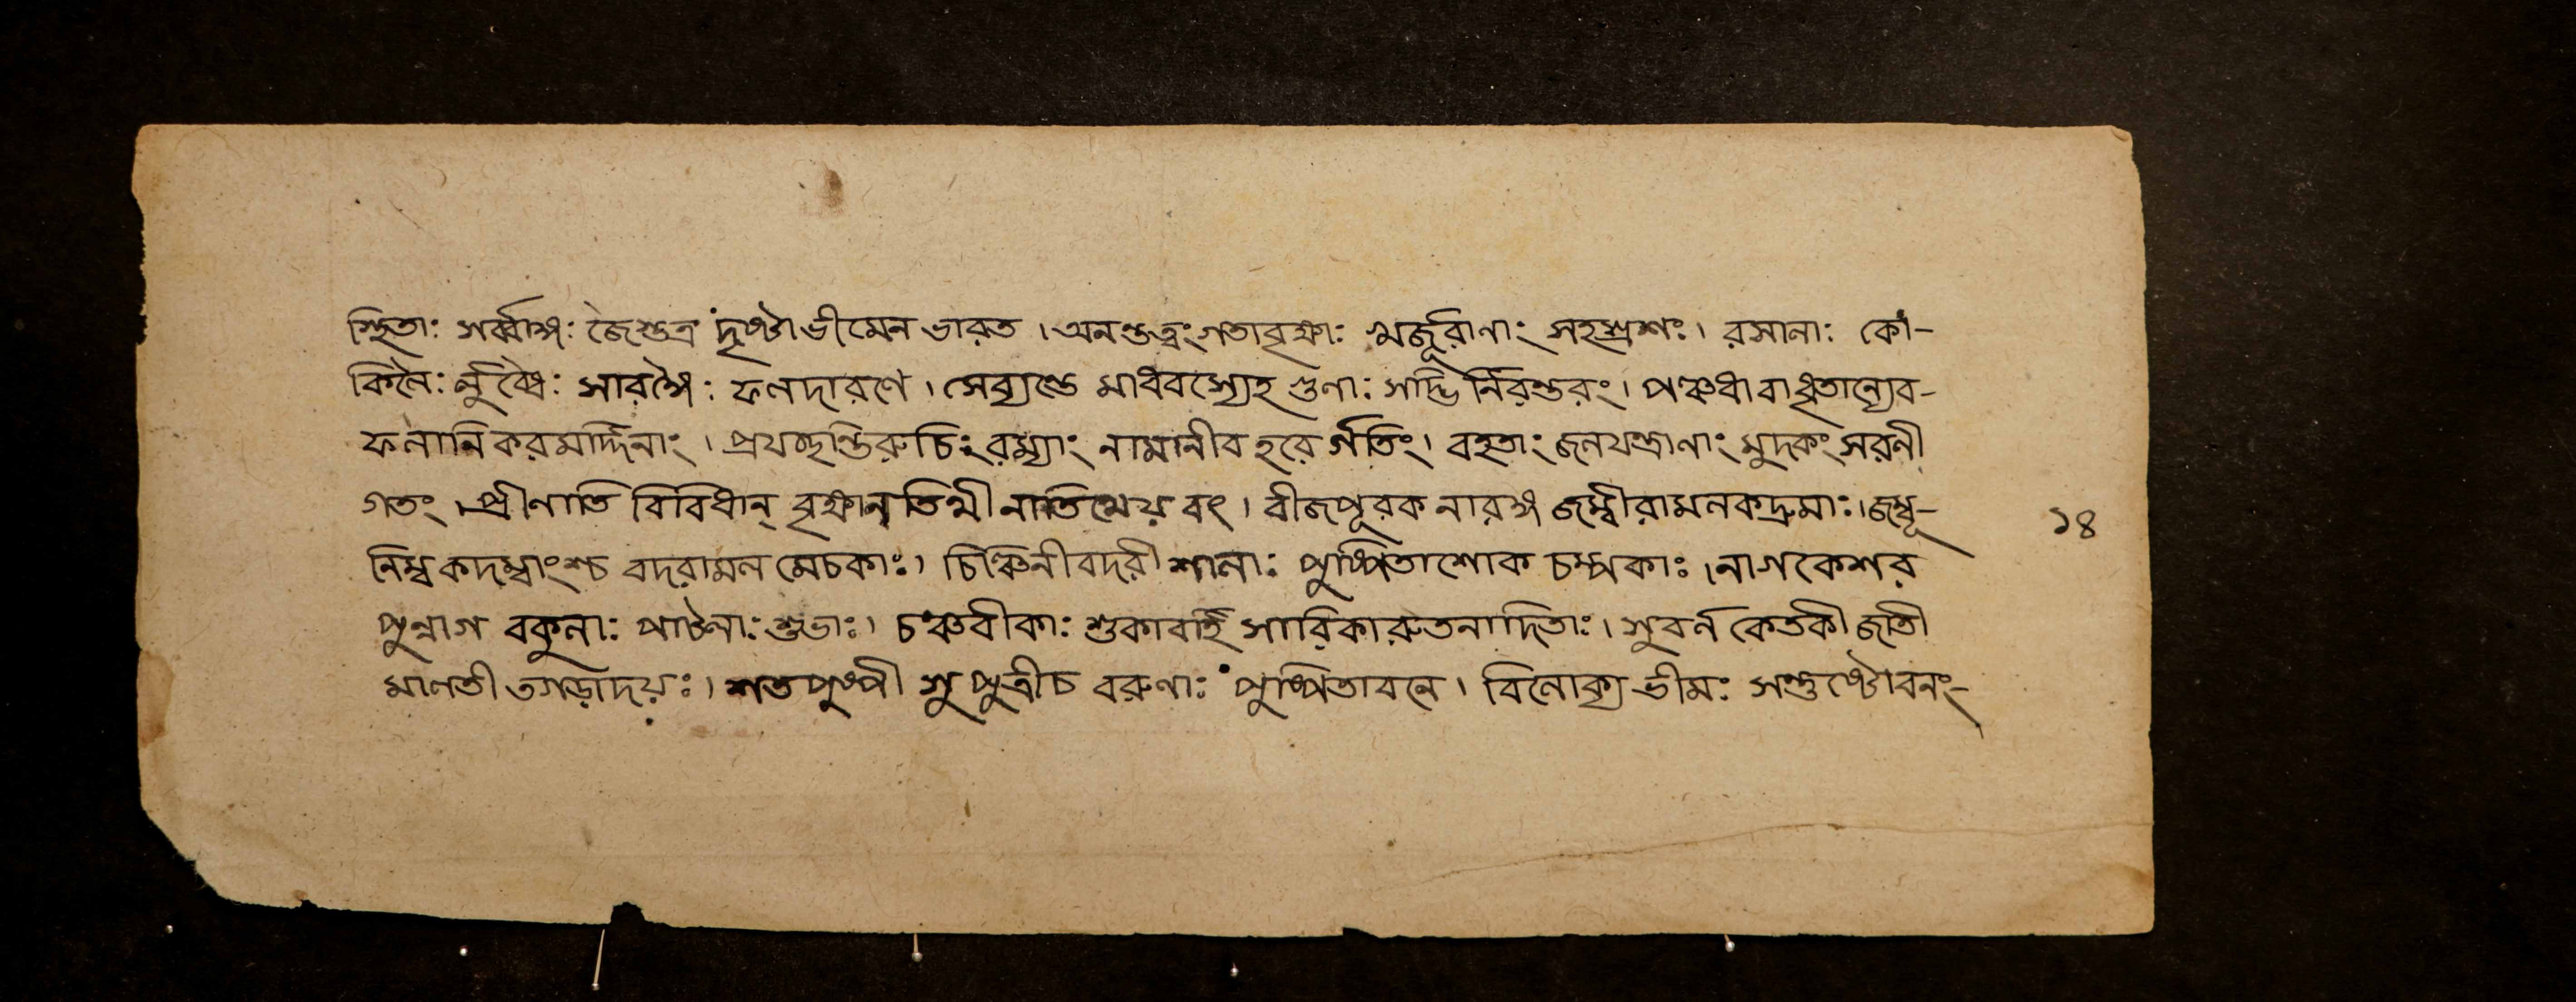 স্থিতাঃ সর্ব্বাঙ্গঃ জৈস্তত্র দৃষ্টা ভীমেন ভারত । অনন্তত্বং গতা বৃক্ষাঃ খর্জূরাণাং সহস্রশঃ । রসালাঃ কো-
কিলৈঃ র্লুব্ধৈঃ সারঙ্গৈঃ ফলদারণে । সেব্যন্তে মাধবস্যেহ গুণাঃ সদ্ভি র্নিরন্তরং । পঞ্চধা বা ধৃতান্যেব-
ফলানি করমর্দ্দিনাং । প্রযচ্ছন্তি রুচিং রম্যাং নামানীব হরে র্গতিং । বহতাং জলযন্ত্রাণাং মুদকং সরণী
গতং । প্রীণাতি বিবিধান্ বৃক্ষান্ বং । বীজপূরক নারঙ্গ জম্বীরামলকদ্রুমাঃ । জম্বূ-
নিম্ব কদম্বাংশ্চ বদরামল মেচকাঃ । চিঞ্চিনী বদরী শালাঃ পুষ্পিতাশোক চম্পকাঃ । নাগকেশর
পুন্নাগ বকুলাঃ পাটলাঃ শুভাঃ । চঞ্চরীকাঃ শুকাবর্হি সারিকারুতনাদিতাঃ । সুবর্ন কেতকী জাতী
মালতী তগড়াদয়ঃ । শতপুষ্পী সুপুত্রীচ বরুণাঃ পুষ্পিতা বনে । বিলোক্য ভীমঃ সন্তুষ্টো বনং-
১৪